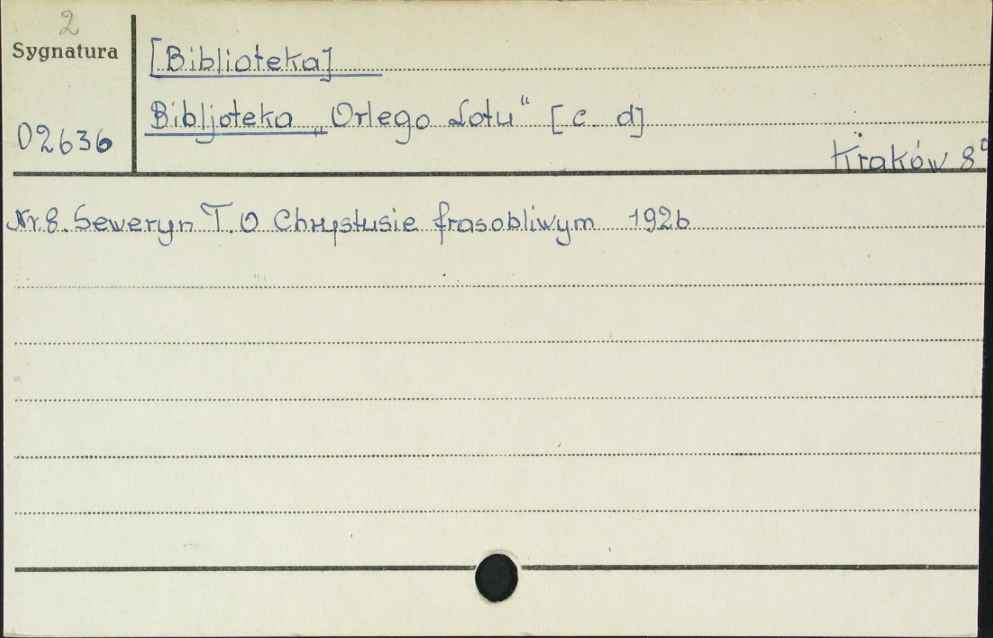 2
Sygnatura
02636
[Biblioteka]
Bibljoteka „Orlego Lotu" [c. d]
Kraków 8°
Nr. 8. Seweryn T. O Chrystusie frasobliwym 1926